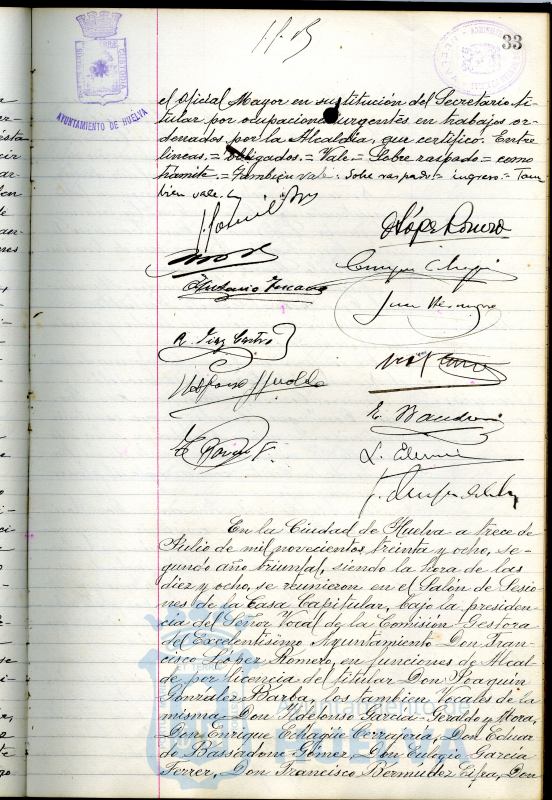 11-15
33
AYUNTAMIENTO DE HUELVA
el Oficial Mayor en sustitución del Secretario ti-
tular por ocupaciones urgentes en trabajos or-
denados por la Alcaldía, que certifico. Entre
lineas = obligados = Vale = Sobre raspado = como
tramite = Tambien vale. Sobre raspado = ingreso = Tam
bien vale.
López Romero
Enrique
Antonio Toscano
Juan
R. Diaz Castro
Ildefonso
E. García F.
En la Ciudad de Huelva a trece de
Julio de mil novecientos treinta y ocho, se-
gundo año triunfal, siendo la hora de las
diez y ocho, se reunieron en el Salón de Sesio-
nes de la Casa Capitular, bajo la presiden-
cia del Señor Vocal de la Comisión Gestora
del Excelentísimo Ayuntamiento Don Fran-
cisco López Romero, en funciones de Alcal-
de por licencia del titular Don Joaquín
González Barba, los tambien Vocales de la
misma Don Ildefonso García-Geraldo y Mora,
Don Enrique Echagüe Cerrajería, Don Eduar-
do Bassadone Gómez, Don Eulogio García
Ferrer, Don Francisco Bermudez Eifra, Don
Ayuntamiento de
HUELVA